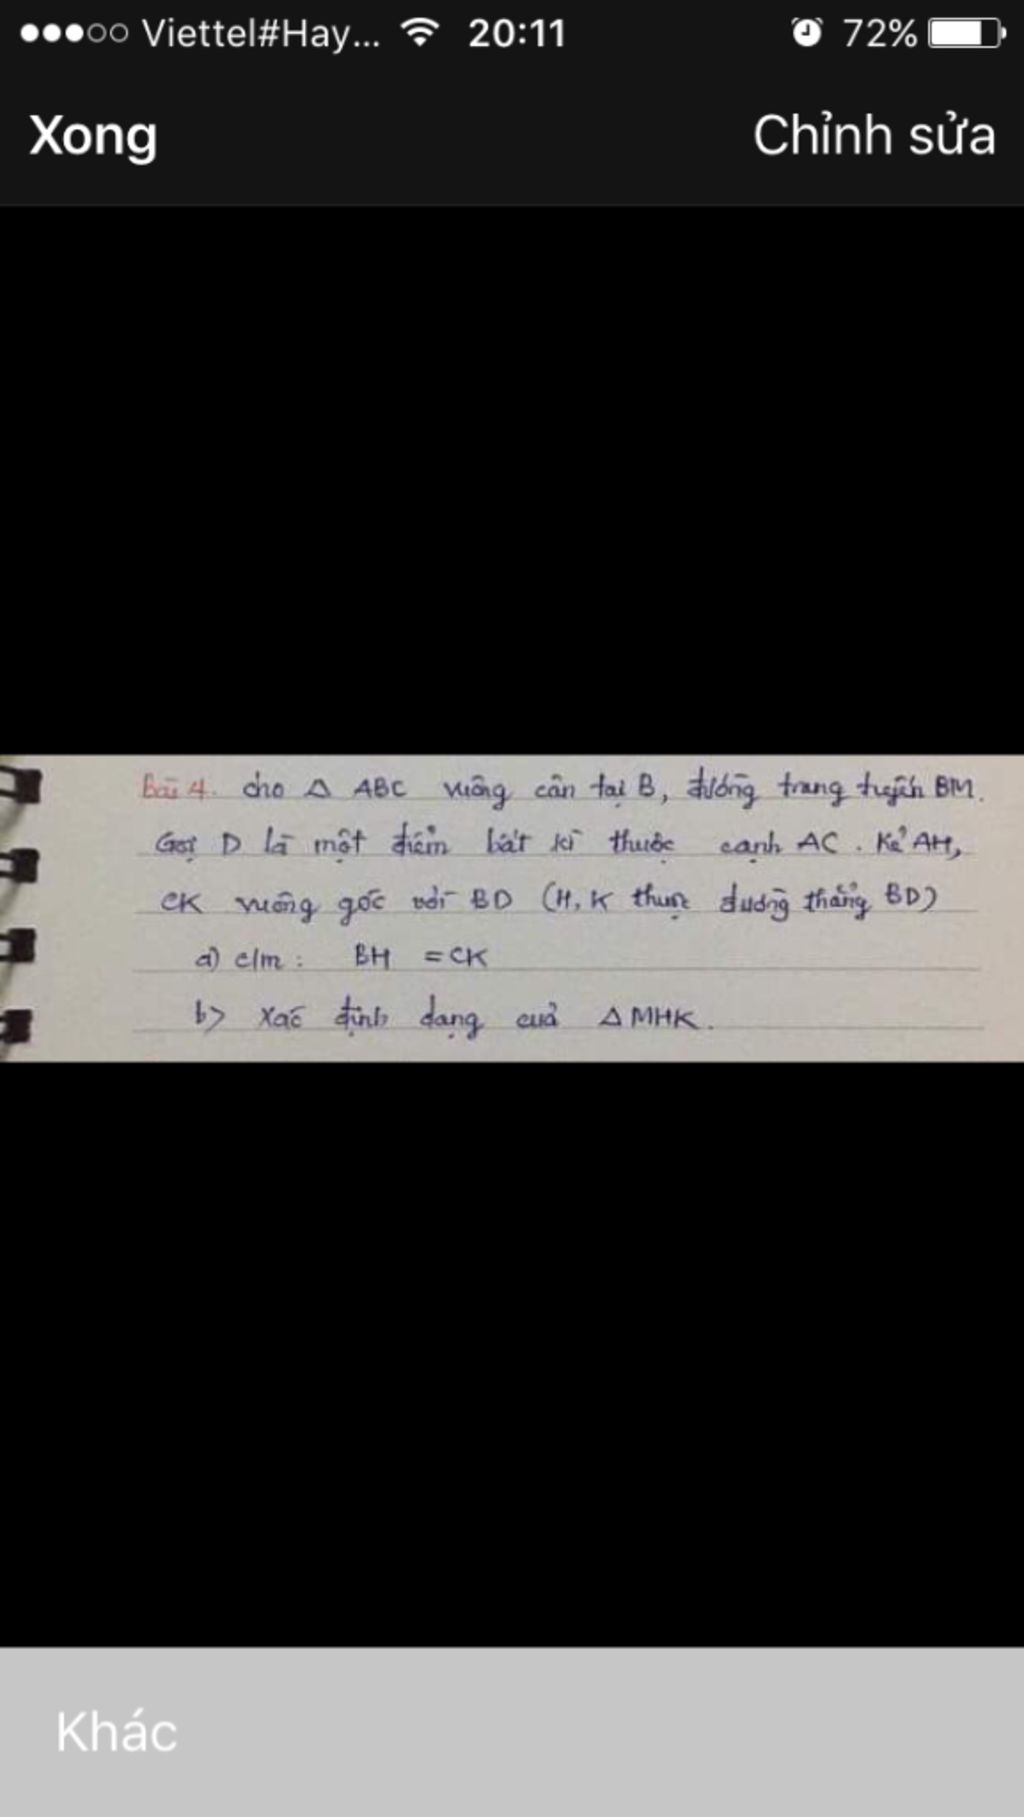 Viettel#Hay... 20:11 72%
Xong Chỉnh sửa
Bài 4. cho Δ ABC vuông cân tại B, đường trung tuyến BM.
Gọi D là một điểm bất kì thuộc cạnh AC. Kẻ AH,
CK vuông góc với BD (H, K thuộc đường thẳng BD)
a) c/m : BH = CK
b> Xác định dạng của Δ MHK.
Khác